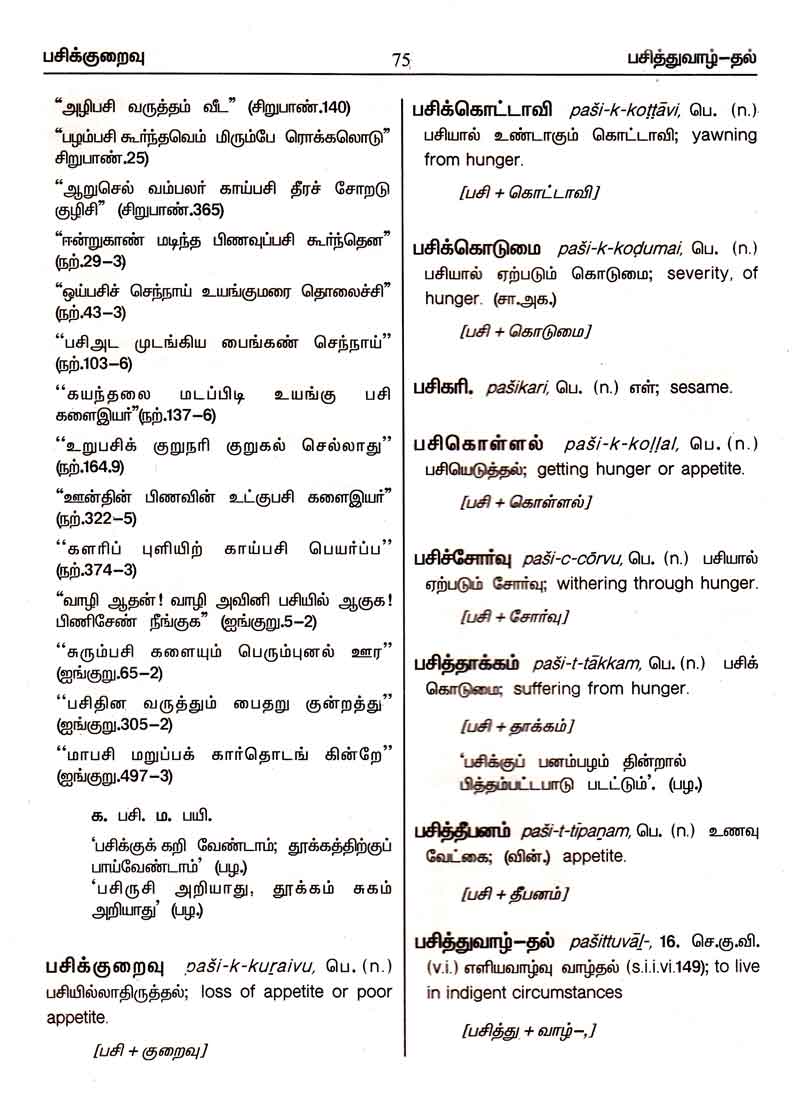 பசிக்குறைவு 75 பசித்துவாழ்–தல்
“அழிபசி வருத்தம் வீட” (சிறுபாண்.140)
“பழம்பசி கூர்ந்தவெம் மிரும்பே ரொக்கலொடு”
சிறுபாண்.25)
“ஆறுசெல் வம்பலர் காய்பசி தீரச் சோறடு
குழிசி” (சிறுபாண்.365)
“ஈன்றுகாண் மடிந்த பிணவுப்பசி கூர்ந்தென”
(நற்.29–3)
“ஒய்பசிச் செந்நாய் உயங்குமரை தொலைச்சி”
(நற்.43–3)
“பசிஅட முடங்கிய பைங்கண் செந்நாய்”
(நற்.103–6)
“கயந்தலை மடப்பிடி உயங்கு பசி
களைஇயர்”(நற்.137–6)
“உறுபசிக் குறுநரி குறுகல் செல்லாது”
(நற்.164.9)
“ஊன்தின் பிணவின் உட்குபசி களைஇயர்”
(நற்.322–5)
“களரிப் புளியிற் காய்பசி பெயர்ப்ப”
(நற்.374–3)
“வாழி ஆதன்! வாழி அவினி பசியில் ஆகுக!
பிணிசேண் நீங்குக” (ஐங்குறு.5–2)
“சுரும்பசி களையும் பெரும்புனல் ஊர”
(ஐங்குறு.65–2)
“பசிதின வருத்தும் பைதறு குன்றத்து”
(ஐங்குறு.305–2)
“மாபசி மறுப்பக் கார்தொடங் கின்றே”
(ஐங்குறு.497–3)
க. பசி. ம. பயி.
‘பசிக்குக் கறி வேண்டாம்; தூக்கத்திற்குப்
பாய்வேண்டாம்’ (பழ.)
‘பசிருசி அறியாது, தூக்கம் சுகம்
அறியாது’ (பழ.)
பசிக்குறைவு paši-k-kuṟaivu, பெ. (n.)
பசியில்லாதிருத்தல்; loss of appetite or poor
appetite.
[பசி + குறைவு]
பசிக்கொட்டாவி paši-k-koṭṭāvi, பெ. (n.)
பசியால் உண்டாகும் கொட்டாவி; yawning
from hunger.
[பசி + கொட்டாவி]
பசிக்கொடுமை paši-k-koḍumai, பெ. (n.)
பசியால் ஏற்படும் கொடுமை; severity, of
hunger. (சா.அக.)
[பசி + கொடுமை]
பசிகரி. pašikari, பெ. (n.) எள்; sesame.
பசிகொள்ளல் paši-k-koḷḷal, பெ. (n.)
பசியெடுத்தல்; getting hunger or appetite.
[பசி + கொள்ளல்]
பசிச்சோர்வு paši-c-cōrvu, பெ. (n.) பசியால்
ஏற்படும் சோர்வு; withering through hunger.
[பசி + சோர்வு]
பசித்தாக்கம் paši-t-tākkam, பெ. (n.) பசிக்
கொடுமை; suffering from hunger.
[பசி + தாக்கம்]
‘பசிக்குப் பனம்பழம் தின்றால்
பித்தம்பட்டபாடு படட்டும்’. (பழ.)
பசித்தீபனம் paši-t-tīpaṉam, பெ. (n.) உணவு
வேட்கை; (வின்.) appetite.
[பசி + தீபனம்]
பசித்துவாழ்–தல் pašittuvāḻ-, 16. செ.கு.வி.
(v.i.) எளியவாழ்வு வாழ்தல் (s.i.i.vi.149); to live
in indigent circumstances
[பசித்து + வாழ்–,]